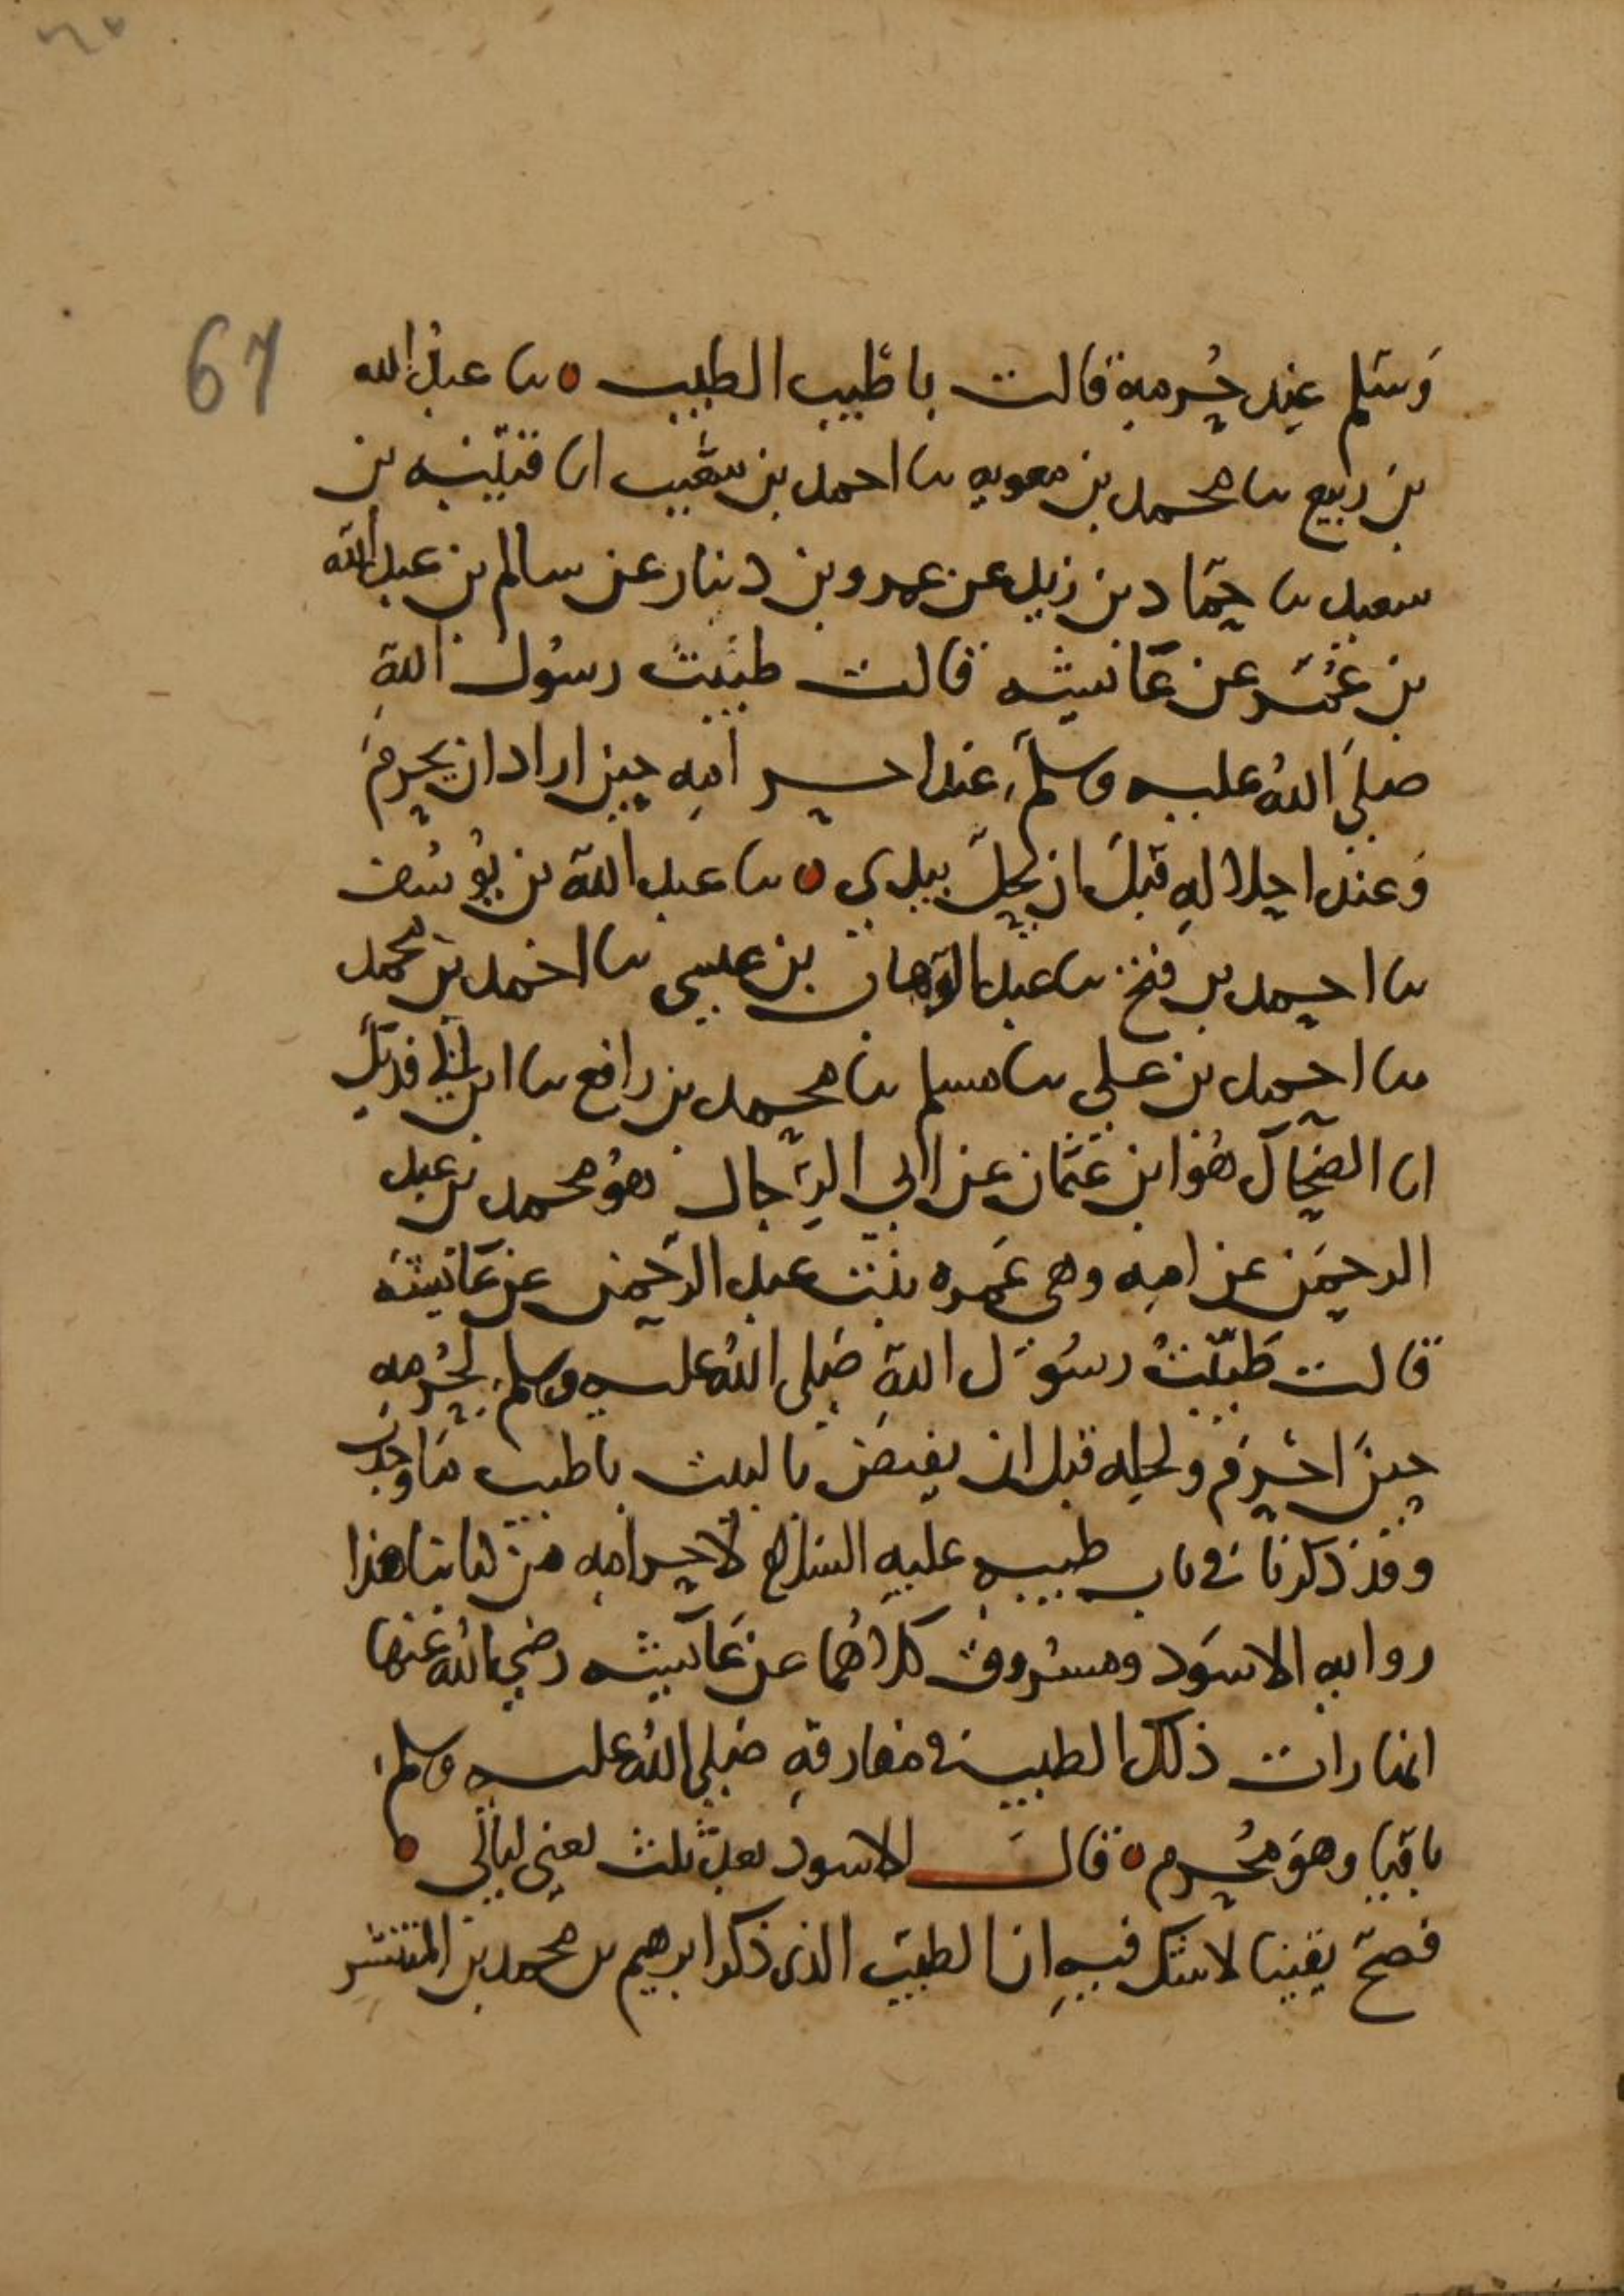 67
وسلم عند حرمه قالت باطيب الطيب ٥ ںا عبد الله
بن ربيع ںا محمد بن معويه ںا احمد بن شعيب اںا قتيبه بن
سعيد ںا حماد بن زيد عن عمرو بن دينار عن سالم بن عبد الله
بن عمر عن عائشه قالت طيبت رسول الله
صلى الله عليه وسلم عند احرامه حين اراد ان يحرم
وعند احلاله قبل ان يحل بيدي ٥ ںا عبد الله بن يوسف
ںا احمد بن فتح ںا عبد الوهاب بن عيسى ںا احمد بن محمد
ںا احمد بن علي ںا مسلم ںا محمد بن رافع ںا ابن ابي فديك
اںا الضحاك هو ابن عثمان عن ابي الرجال هو محمد بن عبد
الرحمن عن امه وهي عمره بنت عبد الرحمن عن عائشه
قالت طيبت رسول الله صلى الله عليه وسلم لحرمه
حين احرم ولحله قبل ان يفيض بالبيت باطيب ما وجدت
وقد ذكرنا في باب طيبه عليه السلام لاحرامه من كتابنا هذا
روايه الاسود ومسروق كلاهما عن عائشه رضي الله عنها
انها رات ذلك الطيب في مفارقه صلى الله عليه وسلم
باقيا وهو محرم ٥ قال الاسود بعد ثلث يعني ليالي ٠
فصح يقينا لا شك فيه ان الطيب الذي ذكر ابرهيم بن محمد بن المنتشر